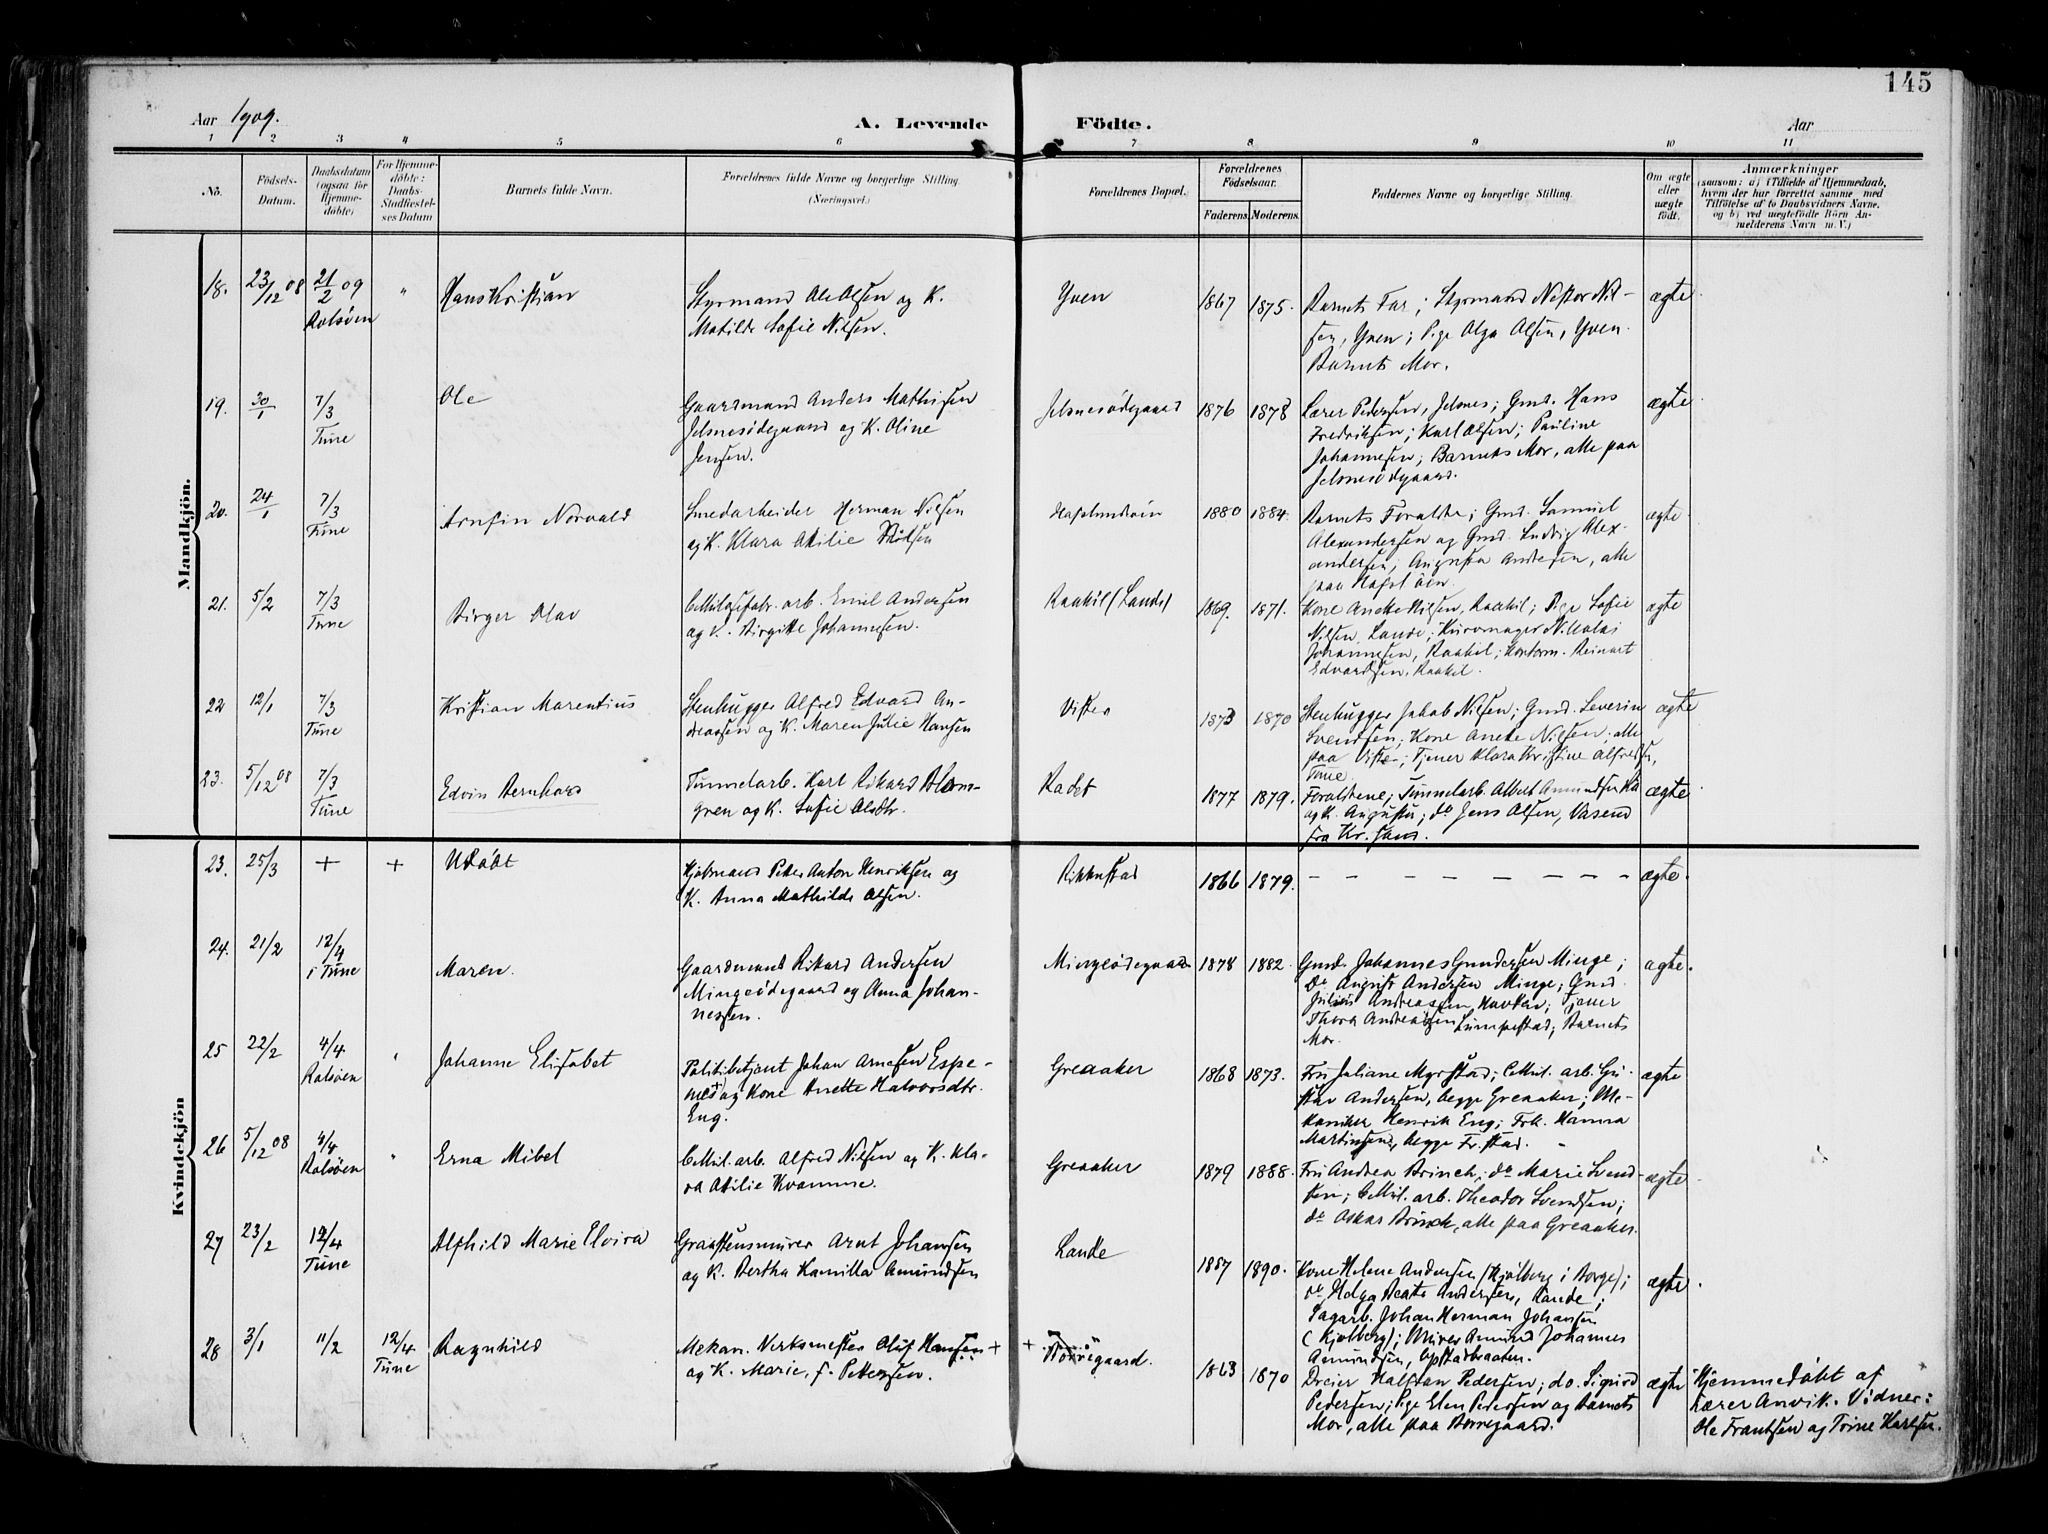 145
Aar 1909.
A. Levende Födte.
Aar
1 2 3 4 5 6 7 8 9 10 11
No.
Födsels-Datum.
Daabsdatum (ogsaa for Hjemmedöbte)
For Hjemmedöbte: Daabs-Stadfæstelses Datum
Barnets fulde Navn.
Forældrenes fulde Navne og borgerlige Stilling (Næringsvei.)
Forældrenes Bopæl.
Forældrenes Födselsaar.
Faderens. Moderens.
Faddernes Navne og borgerlige Stilling.
Om ægte eller uægte födt.
Anmærkninger
(saasom: a) i Tilfælde af Hjemmedaab,
hvem der har forrettet samme, med
Tilföielse af to Daabsvidners Navne,
og b) ved uægtefödte Börn An-
melderens Navn m. V.)
Mandkjön.
18. 23/12 08 21/2 09 Rolsöen " Hans Kristian
Styrmand Ole Olsen og K.
Matilde Sofie Nilsen.
Yven 1867 1875.
Barnets Far; Styrmand Nestor Nil-
sen, Yven; Pige Olga Olsen, Yven.
Barnets Mor.
ægte
19. 30/1 7/3 Tune Ole
Gaardmand Anders Mathisen
Jelsnesödegaard og K. Oline
Jensen.
Jelsnesödegaard 1876 1878
Lærer Pedersen, Jelsnes; Gmd. Hans
Fredriksen; Karl Olsen; Pauline
Johannesen; Barnets Mor, alle paa
Jelsnesödegaard.
ægte
20. 24/1 7/3 Tune Arnfin Norvald
Smedarbeider Herman Nilsen
og K. Klara Otilie
Hafslundsöen 1880 1884.
Barnets Foraldre; Gmd. Samuel
Alexandersen og Gmd. Ludvig Alex-
andersen; Augusta Andersen, alle
paa Hafsl öen.
ægte
21. 5/2 7/3 Tune Birger Olav
Cellulosefabr. arb. Emil Andersen
og K. Birgitte Johannesen.
Raakil (Lande) 1869. 1871.
Kone Anette Nilsen, Raakil; Pige Sofie
Nilsen, Lande; Kurvmager Nikolai
Johannesen, Raakil; Kontorm. Reinart
Edvardsen, Raakil.
ægte
22 12/1 7/3 Tune Kristian Marentius
Stenhugger Alfred Edvard An-
dreassen og K. Maren Julie Hansen
Visten 1873 1870
Stenhugger Jakob Nilsen; Gmd. Severin
Svendsen; Kone Anette Nilsen; alle
paa Viste; Tjener Klara Kristine Alfredsen,
Tune.
ægte
23. 5/12 08 7/3 Tune Edvin Bernhard
Tunnelarb. Karl Rikard Blom-
gren og K. Sofie Olsdtr.
Raded 1877 1879.
Forældrene; Tunnelarb. Albert Amundsen
og K. Augusta; do Jens Olsen, Vasend
fra Kr.sand.
ægte
Kvindekjön
23. 25/3 + + Udöbt
Hjulmand Peter Anton Henriksen og
K. Anna Mathilde Olsen.
Rikkestad 1866 1879.
— — — — — — — — —
ægte.
24. 21/2 12/4 i Tune Maren.
Gaardmand Rikard Andersen
Mingeödegaard og Anna Johan-
nessen.
Mingeödegaard 1878 1882.
Gmd. Johannes Gundersen Minge;
Do August Andersen Minge; Gmd.
Julius Andreassen, Havken; Tjener
Thora Andreassen Lumpestad; Barnets
Mor.
ægte.
25 22/2 4/4 Rolsöen " Johanne Elisabet
Politibetjent Johan Arnesen Espe-
næs og Kone Anette Halvorsdtr.
Eng.
Greaaker 1868 1873.
Fru Juliane Myrstad; Cellul. arb. Gu-
stav Andersen, begge Greaaker; Me-
kaniker Henrik Eng; Frk. Hanna
Martinsen, begge Fr.stad.
ægte
26 5/12 08 4/4 Rolsöen " Erna Mibel
Cellul. arb. Alfred Nilsen og K. Kla-
ra Otilie Kvamme.
Greaaker 1879 1888.
Fru Andrea Brinch, do Marie Svend-
sen; Cellul. arb. Theodor Svendsen;
do Oskar Brinch, alle paa Greaaker.
ægte
27 23/2 12/4 Tune Alfhild Marie Elvira
Graastensmurer Arnt Johansen
og K. Bertha Kamilla Amundsen
Lande 1887 1890.
Kone Helene Andersen (Kjölberg i Borge);
do Helga Beate Andersen, Lande;
Sagarb. Johan Herman Johansen
(Kjölberg); Murer Amund Johannes
Amundsen, Opstadbraaten.
ægte
28 3/1 11/2 12/4 Tune Ragnhild
Mekan. Verksmester Oluf Hansen +
og K. Marie, f. Pettersen.
+ Borregaard. 1863 1870
Dreier Halfdan Pedersen; do. Sigurd
Pedersen; Pige Elen Pedersen og Barnets
Mor, alle paa Borregaard.
ægte
Hjemmedöbt af
Lærer Anvik. Vidner:
Ole Frantsen og Trine Karlsen.